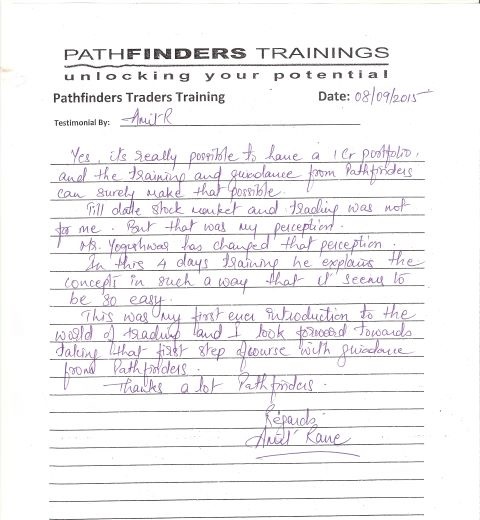 PATHFINDERS TRAININGS
unlocking your potential
Pathfinders Traders Training Date: 08/09/2015
Testimonial By: Amit R
Yes, it's really possible to have a 1 Cr portfolio,
and the training and guidance from Pathfinders
can surely make that possible.
Till date stock market and trading was not
for me. But that was my perception.
Mr. Yogeshwar has changed that perception.
In this 4 days training he explains the
concepts in such a way that it seems to
be so easy.
This was my first ever introduction to the
world of trading and I look forward towards
taking that first step ofcourse with guidance
from Pathfinders.
Thanks a lot Pathfinders.
Regards
Amit Rane